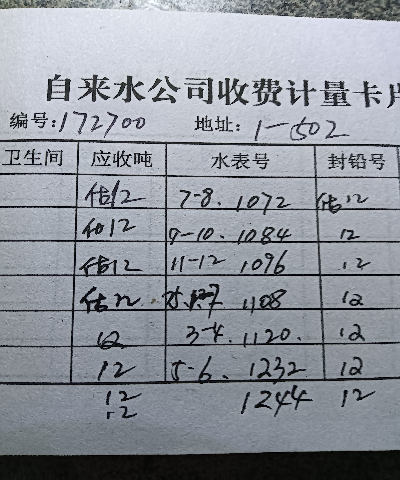 自来水公司收费计量卡片
编号:172700 地址:1-502
卫生间 应收吨 水表号 封铅号
估12 7-8. 1072 估12
估12 9-10. 1084 12
估12 11-12 1096 12
估12 1108 12
12 3-4. 1120. 12
12 5-6. 1232 12
12 1244 12
12